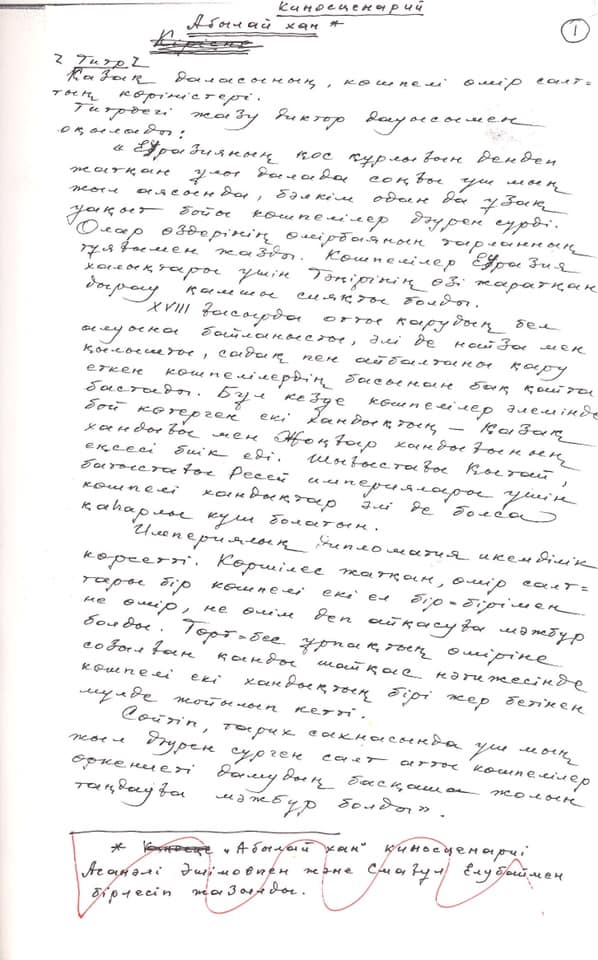 Киносценарий
Абылай хан *
1
Кіріспе
Титр
Қазақ даласының, көшпелі өмір салт=
тың көріністері.
Титрдегі жазу диктор дауысымен
оқылады:
"Еуразияның қос құрлығын дендеп
жатқан ұлы далада соңғы үш мың
жыл аясында, бәлкім одан да ұзақ
уақыт бойы көшпелілер дәурен сүрді.
Олар өздерінің өмірбаянын тарланның
тұяғымен жазды. Көшпелілер Еуразия
халықтары үшін Тәңірінің өзі жаратқан
дырау қамшы сияқты болды.
XVIII ғасырда отты қарудың бел
алуына байланысты, әлі де найза мен
қылышты, садақ пен айбалтаны қару
еткен көшпелілердің басынан бақ қайта
бастады. Бұл кезде көшпелілер әлемінде
бой көтерген екі хандықтың – Қазақ
хандығы мен Жоңғар хандығының
еңсесі биік еді. Шығыстағы Қытай,
батыстағы Ресей империялары үшін
көшпелі хандықтар әлі де болса
қаһарлы күш болатын.
Империялық дипломатия икемділік
көрсетті. Көршілес жатқан, өмір салт=
тары бір көшпелі екі ел бір=бірімен
не өмір, не өлім деп айқасуға мәжбүр
болды. Төрт=бес ұрпақтың өміріне
созылған қанды шайқас нәтижесінде
көшпелі екі хандықтың бірі жер бетінен
мүлде жойылып кетті.
Сөйтіп, тарих сахнасында үш мың
жыл дәурен сүрген салт атты көшпелілер
өркениеті дамудың басқаша жолын
таңдауға мәжбүр болды".
* "Абылай хан" киносценариі
Асанәлі Әшімовпен және Смағұл Елубаймен
бірлесіп жазылды.